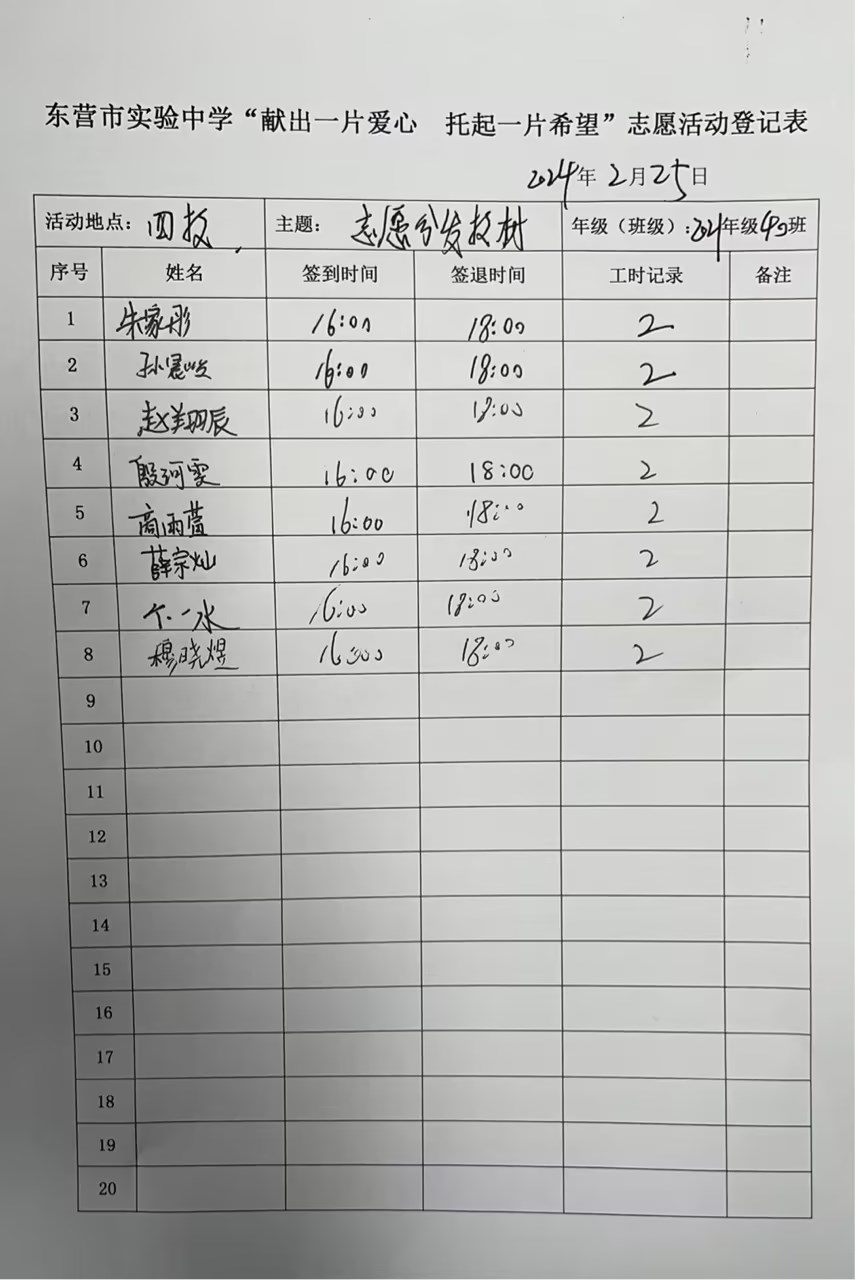 东营市实验中学“献出一片爱心 托起一片希望”志愿活动登记表
2024年2月25日
活动地点：四教 主题：志愿分发教材 年级（班级）：2021年级40班
序号 姓名 签到时间 签退时间 工时记录 备注
1 朱家彤 16:00 18:00 2
2 孙 16:00 18:00 2
3 赵翔辰 16:00 18:00 2
4 殷珂雯 16:00 18:00 2
5 高雨萱 16:00 18:00 2
6 薛宗灿 16:00 18:00 2
7 16:00 18:00 2
8 穆晓煜 16:00 18:00 2
9
10
11
12
13
14
15
16
17
18
19
20